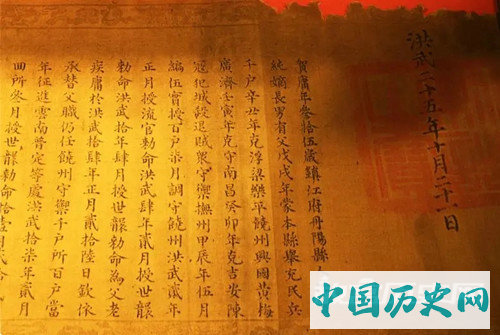 洪武二十五年十月二十一日
賀庸年叁拾伍歲鎮江府丹陽縣
純嫡長男有父戊戌年蒙本縣舉充民兵
千户辛丑年克浮梁樂平饒州興國黃梅
廣濟壬寅年克守南昌癸卯年克吉安陳
寇犯城從退賊衆守禦撫州甲辰年伍月
編伍實授百户柒月調守饒州洪武貳年
正月授流官勅命洪武肆年貳月授世襲
勅命洪武拾年肆月授世襲勅命為父老
疾庸於洪武拾肆年正月貳拾陸日欽依
承替父職仍任饒州守禦千户所百户當
年征進雲南普定等處洪武拾柒年貳月
回所叁月授世襲勅命拾壹月貳拾
中国历史网